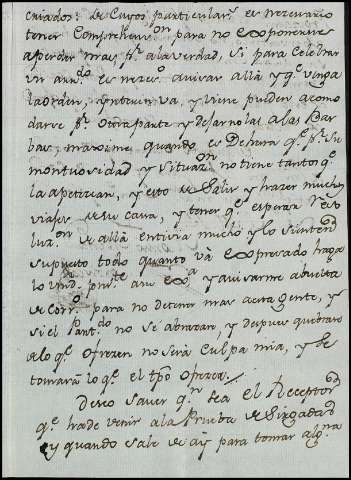 criados: de cuyos particulars. es nezesario
tener Comprehens.on para no exponernse
a perder mas, p.r a la verdad, si para celebrar
un arr.do es nezes.o avisar allà y q.e venga
la orden, interin va, y viene pueden acomo
darse p.r otra parte y dejarnos a las Bar
bas, maxime quando es Dehesa q.e p.r su
montuosidad y situaz.on no tiene tantos q.e
la apetezcan, y esto de salir y hazer muchos
viajes de su casa, y tener q.e esperar Reso
luz.on de allà entivia mucho y lo sienten
supuesto todo quanto va expresado haga
lo Vmd. pres.te a su ex.a y avisarme a buelta
de Corr.o para no detener mas a esta gente, y
si el Pant.do no se abrazan, y despues quebrare
de lo q.e ofrezen no serà culpa mia, y se
tomarà lo q.e el tpo ofrezca //
Deseo saver q.n sea el Receptor
q.e ha de venir à la Prueba de
y quando sale de ay para tomar alg.na